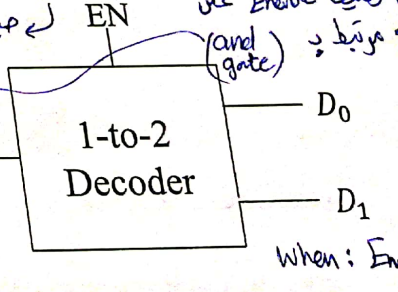 EN
(and
gate)
مرتبط بـ
1-to-2
Decoder
D₀
D₁
when: En